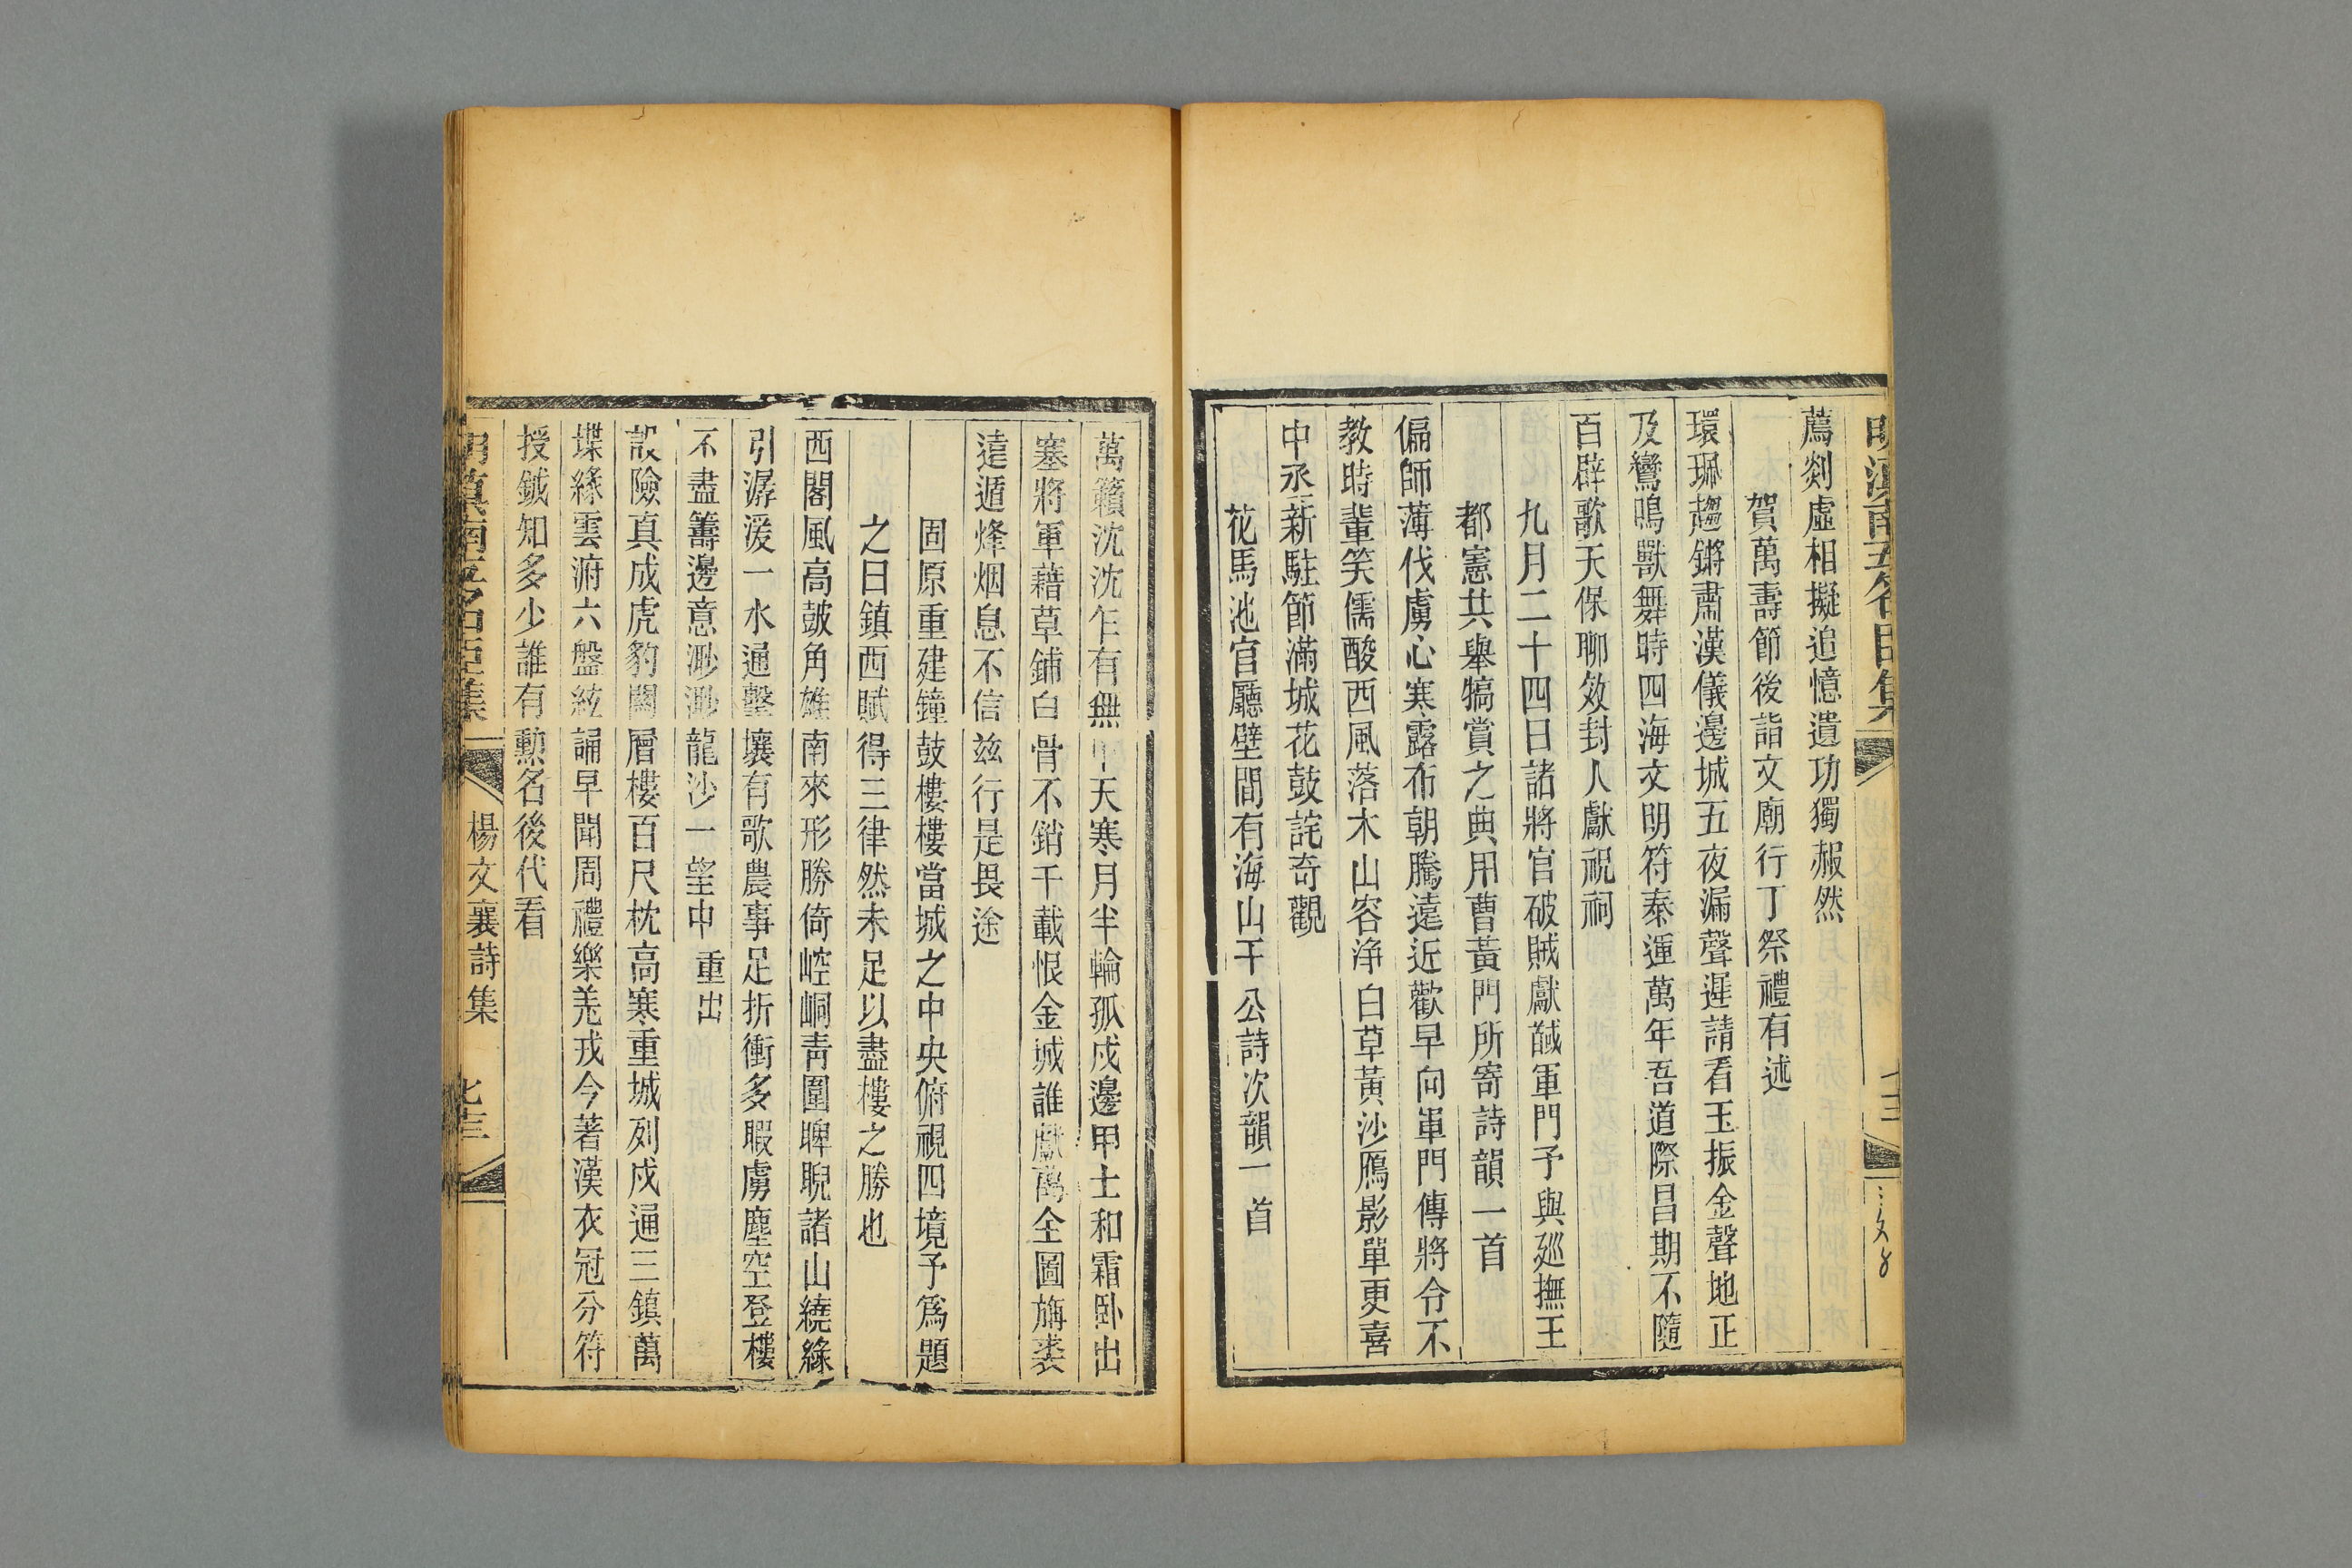 薦剡虛相擬追憶遺功獨赧然
賀萬壽節後詣文廟行丁祭禮有述
環珮趨鏘肅漢儀邊城五夜漏聲遲請看玉振金聲地正
及鸞鳴獸舞時四海文明符泰運萬年吾道際昌期不隨
百辟歌天保聊效封人獻祝祠
九月二十四日諸將官破賊獻馘軍門予與廵撫王
都憲共舉犒賞之典用曹黃門所寄詩韻一首
偏師薄伐虜心寒露布朝騰遠近歡早向軍門傳將令不
教時輩笑儒酸西風落木山容浄白草黃沙鴈影單更喜
中丞新駐節滿城花鼓詫奇觀
花馬池官廳壁間有海山干公詩次韻一首
萬籟沈沈乍有無 天寒月半輪孤戍邊甲士和霜卧出
塞將軍藉草鋪白骨不銷千載恨金城誰獻萬全圖旃裘
逺遁烽烟息不信兹行是畏途
固原重建鐘鼓樓樓當城之中央俯視四境予爲題
之曰鎮西賦得三律然未足以盡樓之勝也
西閣風高皷角雄南來形勝倚崆峒青圍睥睨諸山繞綠
引潺湲一水通鑿壤有歌農事足折衝多暇虜塵空登樓
不盡籌邊意渺渺龍沙一望中 重出
設險真成虎豹關層樓百尺枕高寒重城列戍通三鎮萬
堞緣雲瀚六盤絃誦早聞周禮樂羌戎今著漢衣冠分符
授鉞知多少誰有勳名後代看
明滇南五名臣集 楊文襄詩集